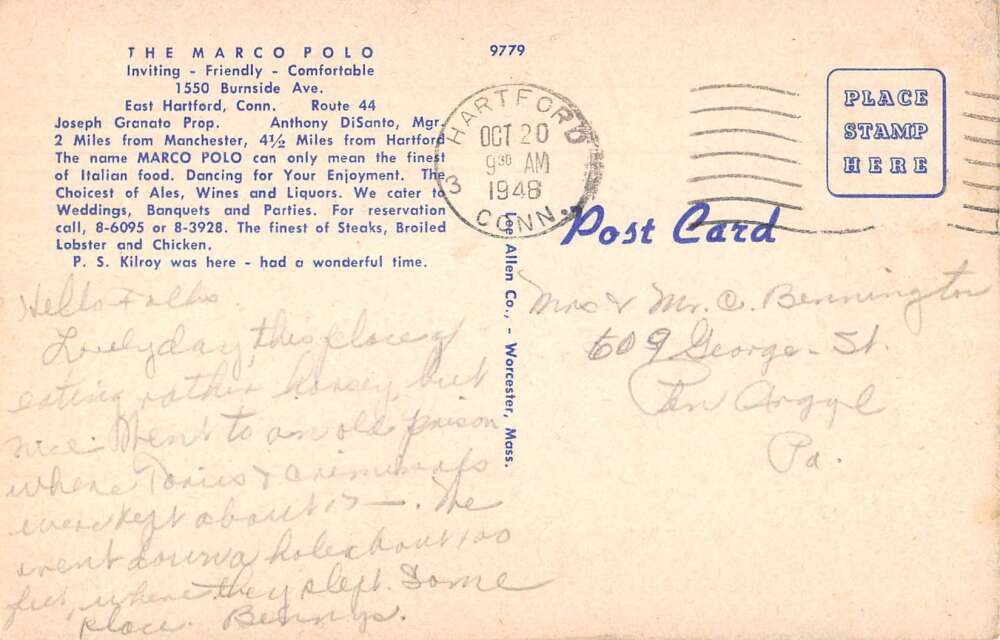 THE MARCO POLO
Inviting - Friendly - Comfortable
1550 Burnside Ave.
East Hartford, Conn. Route 44
Joseph Granato Prop. Anthony DiSanto, Mgr.
2 Miles from Manchester, 4½ Miles from Hartford
The name MARCO POLO can only mean the finest
of Italian food. Dancing for Your Enjoyment. The
Choicest of Ales, Wines and Liquors. We cater to
Weddings, Banquets and Parties. For reservation
call, 8-6095 or 8-3928. The finest of Steaks, Broiled
Lobster and Chicken.
P. S. Kilroy was here - had a wonderful time.
Hello Folks
Lovely day, this place of
eating rather horsey, but
nice. Went to an old prison
where Tories & criminals
were kept about 17—. We
went down a hole about 100
feet, where they slept. Some
place. Bennys.
9779
HARTFORD
OCT 20
9 30 AM
1948
3
CONN.
Lee Allen Co., - Worcester, Mass.
PLACE
STAMP
HERE
Post Card
Mrs & Mr. C. Bennington
609 George - St.
Pen Argyl
Pa.